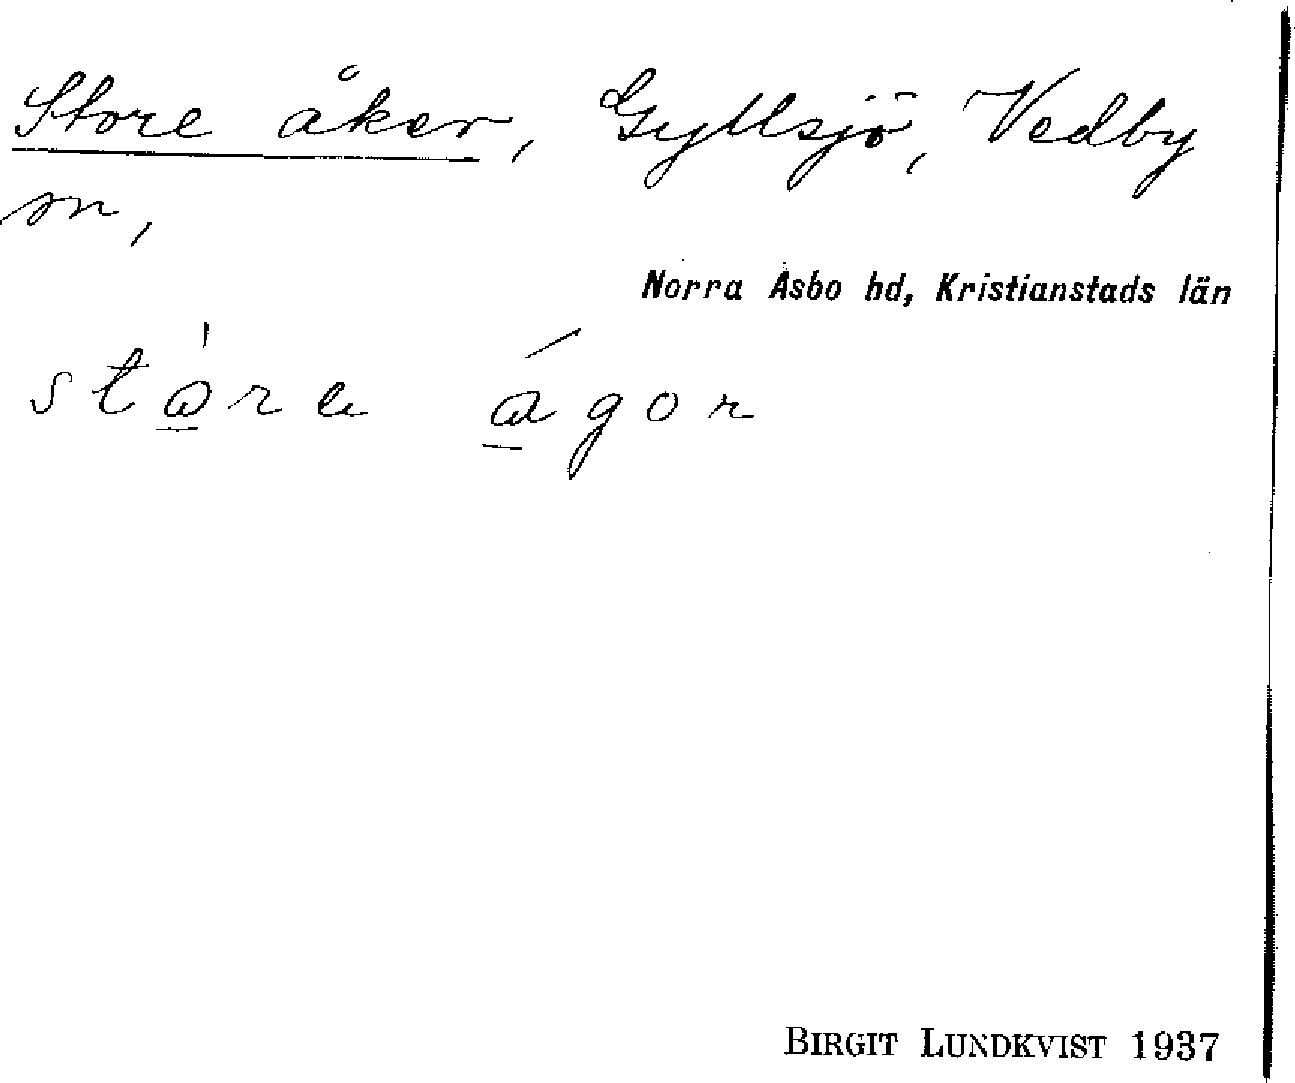 Store åker, Gyllsjö, Vedby
sn,
Norra Åsbo hd, Kristianstads län
BIRGIT LUNDKVIST 1937